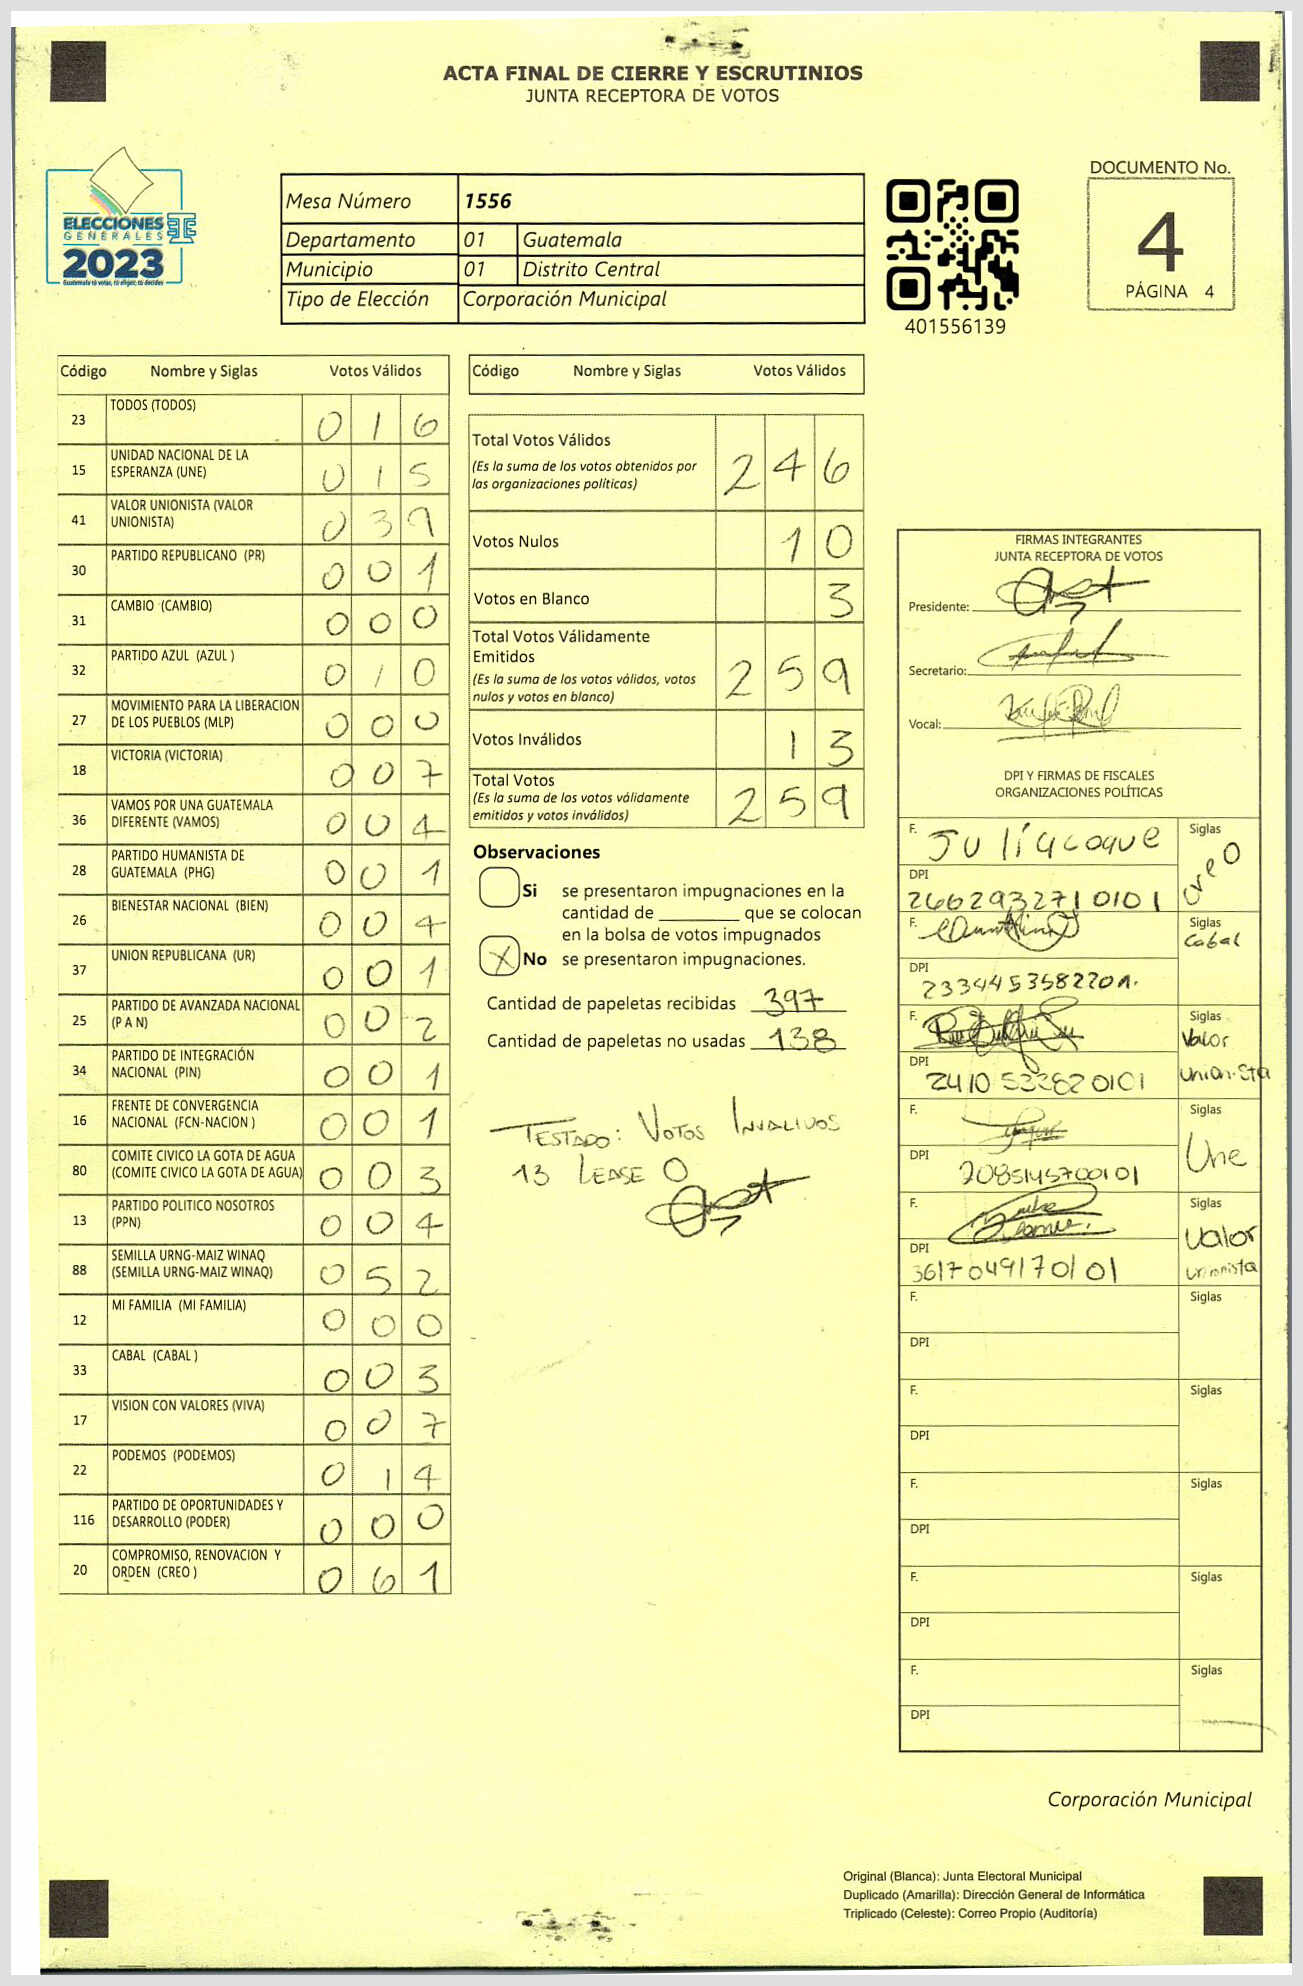 ACTA FINAL DE CIERRE Y ESCRUTINIOS
JUNTA RECEPTORA DE VOTOS
ELECCIONES
GENERALES
2023
Guatemala tú votas, tú eliges, tú decides
Mesa Número 1556
Departamento 01 Guatemala
Municipio 01 Distrito Central
Tipo de Elección Corporación Municipal
401556139
DOCUMENTO No.
4
PÁGINA 4
Código Nombre y Siglas Votos Válidos
23 TODOS (TODOS) 0 1 6
15 UNIDAD NACIONAL DE LA ESPERANZA (UNE) 0 1 5
41 VALOR UNIONISTA (VALOR UNIONISTA) 0 3 9
30 PARTIDO REPUBLICANO (PR) 0 0 1
31 CAMBIO (CAMBIO) 0 0 0
32 PARTIDO AZUL (AZUL ) 0 1 0
27 MOVIMIENTO PARA LA LIBERACION DE LOS PUEBLOS (MLP) 0 0 0
18 VICTORIA (VICTORIA) 0 0 7
36 VAMOS POR UNA GUATEMALA DIFERENTE (VAMOS) 0 0 4
28 PARTIDO HUMANISTA DE GUATEMALA (PHG) 0 0 1
26 BIENESTAR NACIONAL (BIEN) 0 0 4
37 UNION REPUBLICANA (UR) 0 0 1
25 PARTIDO DE AVANZADA NACIONAL (P A N) 0 0 2
34 PARTIDO DE INTEGRACIÓN NACIONAL (PIN) 0 0 1
16 FRENTE DE CONVERGENCIA NACIONAL (FCN-NACION ) 0 0 1
80 COMITE CIVICO LA GOTA DE AGUA (COMITE CIVICO LA GOTA DE AGUA) 0 0 3
13 PARTIDO POLITICO NOSOTROS (PPN) 0 0 4
88 SEMILLA URNG-MAIZ WINAQ (SEMILLA URNG-MAIZ WINAQ) 0 5 2
12 MI FAMILIA (MI FAMILIA) 0 0 0
33 CABAL (CABAL ) 0 0 3
17 VISION CON VALORES (VIVA) 0 0 7
22 PODEMOS (PODEMOS) 0 1 4
116 PARTIDO DE OPORTUNIDADES Y DESARROLLO (PODER) 0 0 0
20 COMPROMISO, RENOVACION Y ORDEN (CREO ) 0 6 1
Código Nombre y Siglas Votos Válidos
Total Votos Válidos 2 4 6
(Es la suma de los votos obtenidos por
las organizaciones políticas)
Votos Nulos 1 0
Votos en Blanco 3
Total Votos Válidamente
Emitidos 2 5 9
(Es la suma de los votos válidos, votos
nulos y votos en blanco)
Votos Inválidos 1 3
Total Votos 2 5 9
(Es la suma de los votos válidamente
emitidos y votos inválidos)
Observaciones
Si se presentaron impugnaciones en la
cantidad de ________ que se colocan
en la bolsa de votos impugnados
X No se presentaron impugnaciones.
Cantidad de papeletas recibidas 397
Cantidad de papeletas no usadas 138
TESTADO: VOTOS INVALIDOS
13 LEASE 0
FIRMAS INTEGRANTES
JUNTA RECEPTORA DE VOTOS
Presidente:
Secretario:
Vocal:
DPI Y FIRMAS DE FISCALES
ORGANIZACIONES POLÍTICAS
F. Siglas
creo
DPI
2662932710101
F. Siglas
Cabal
DPI
F. Siglas
Valor
Unionista
DPI
F. Siglas
Une
DPI
F. Siglas
Valor
unionista
DPI
3617049170101
F. Siglas
DPI
F. Siglas
DPI
F. Siglas
DPI
F. Siglas
DPI
F. Siglas
DPI
Corporación Municipal
Original (Blanca): Junta Electoral Municipal
Duplicado (Amarilla): Dirección General de Informática
Triplicado (Celeste): Correo Propio (Auditoría)